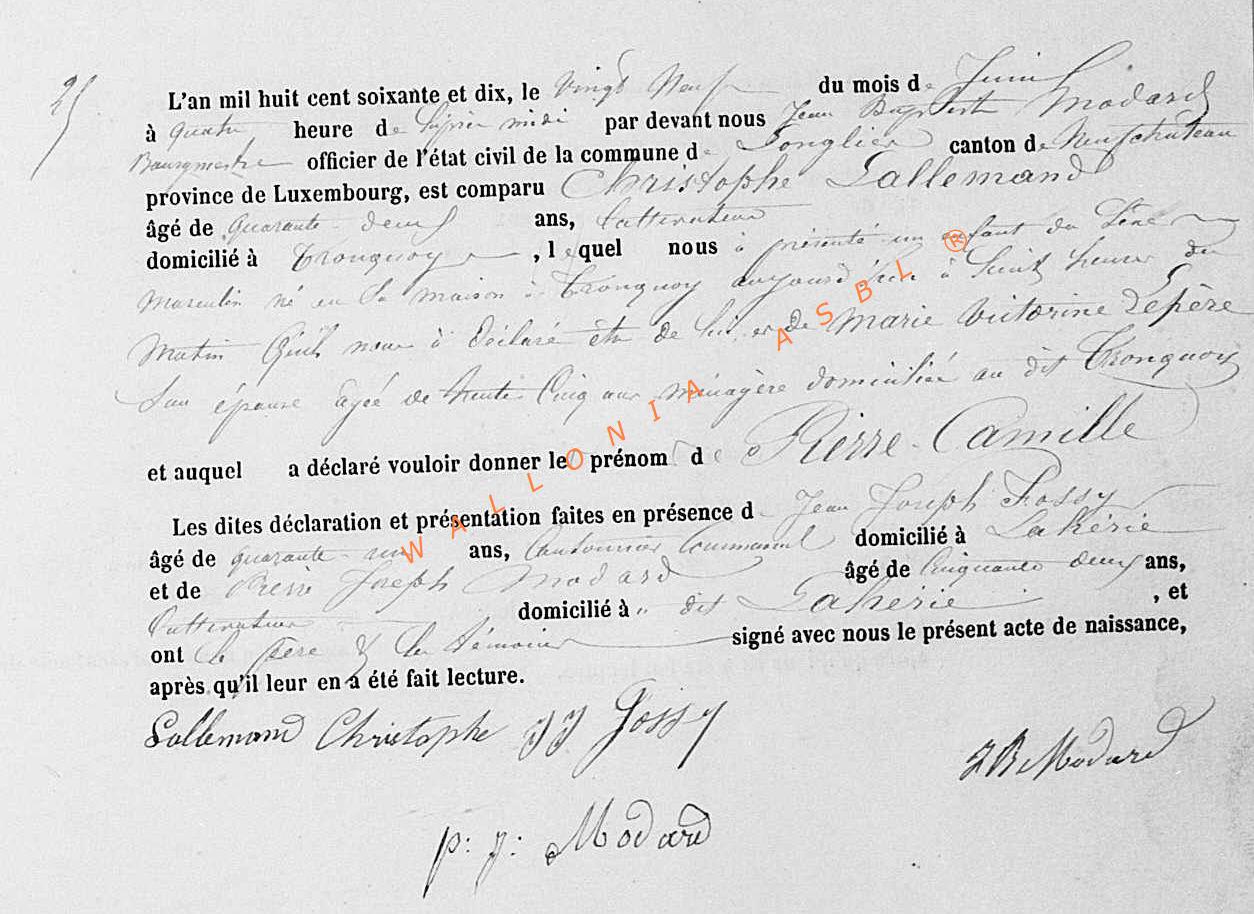 25
L'an mil huit cent soixante et dix, le Vingt Neuf du mois de Juin
à quatre heure de l'après midi par devant nous Jean Baptiste Modard
Bourgmestre officier de l'état civil de la commune de Longlier canton de Neufchateau
province de Luxembourg, est comparu Christophe Lallemand
âgé de quarante-deux ans, Cultivateur
domicilié à Tronquoy, lequel nous à présenté un enfant du Sexe
Masculin né en Sa maison à Tronquoy aujourd'hui à heures du
Matin Qu'il nous à Déclaré être de lui et de Marie Victorine Lepère
Son épouse âgée de trente Cinq ans ménagère domiciliée au dit Tronquoy
et auquel a déclaré vouloir donner le prénom de Pierre-Camille
Les dites déclaration et présentation faites en présence de Jean Joseph Fossy
âgé de quarante-un ans, Cantonnier Communal domicilié à Lahérie
et de Pierre Joseph Modard âgé de Cinquante deux ans,
Cultivateur domicilié à dit Laherie, et
ont le père & les témoins signé avec nous le présent acte de naissance,
après qu'il leur en a été fait lecture.
Lallemand Christophe JJ Fossy
JB Modard
p: j: Modard
WALLONIA ASBL ®